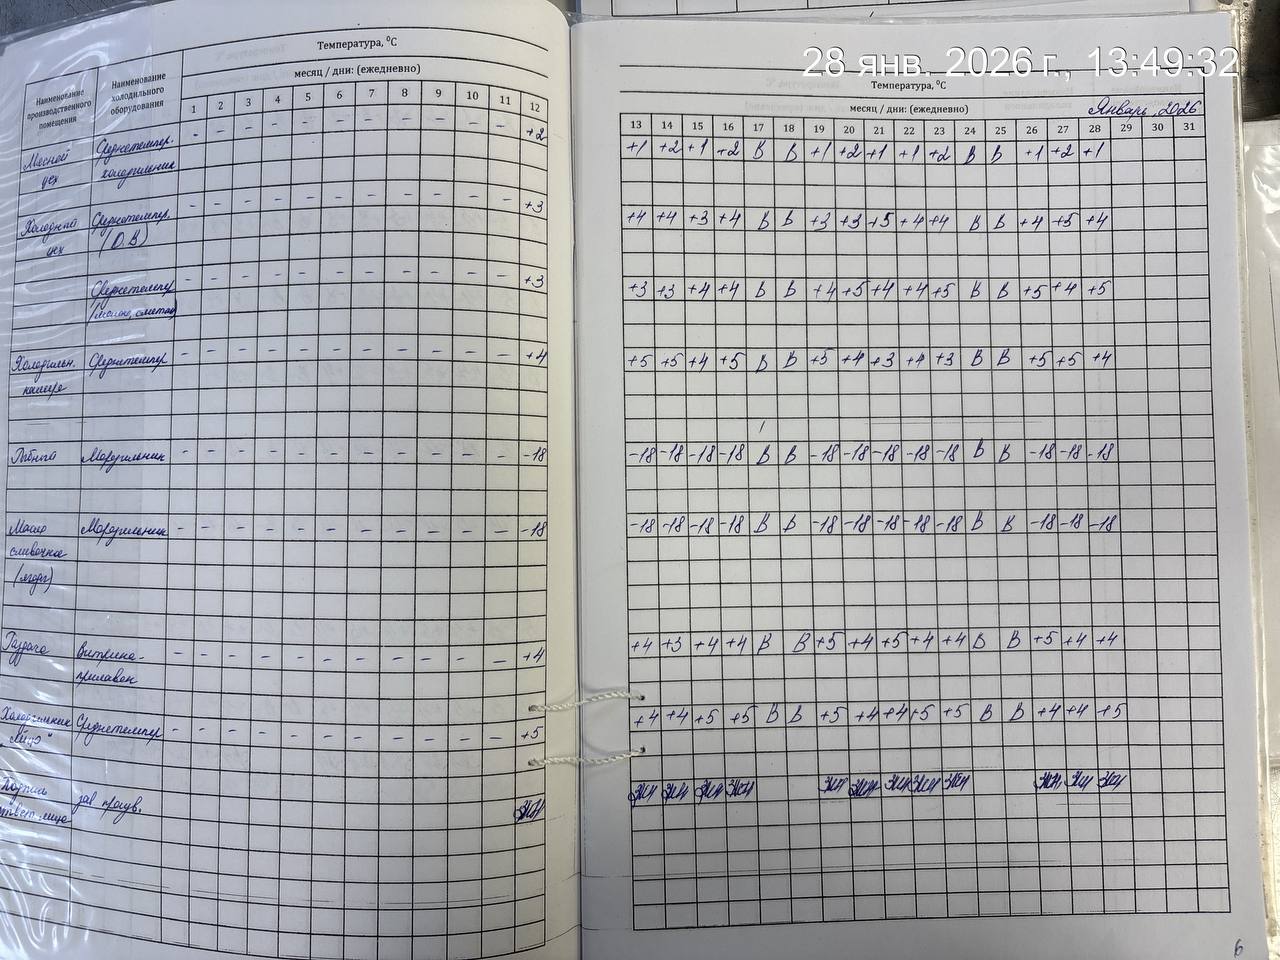 28 янв. 2026 г. 13:49:32
Температура, ⁰С
месяц / дни: (ежедневно)
Наименование производственного помещения
Наименование холодильного оборудования
1 2 3 4 5 6 7 8 9 10 11 12
Мясной цех Среднетемпер. холодильник - - - - - - - - - - - +2
Холодный цех Среднетемпер. (О.В) - - - - - - - - - - - +3
Среднетемпер (молоко, сметана) - - - - - - - - - - - +3
Холодильн. камера Среднетемпер - - - - - - - - - - - +4
Морозильник - - - - - - - - - - - -18
Масло сливочное (ягоды) Морозильник - - - - - - - - - - - -18
Раздача Витрина-прилавок - - - - - - - - - - - +4
Холодильник "Яйцо" Среднетемпер - - - - - - - - - - - +5
зав произв.
Температура, ⁰С
месяц / дни: (ежедневно) Январь, 2026
13 14 15 16 17 18 19 20 21 22 23 24 25 26 27 28 29 30 31
+1 +2 +1 +2 В В +1 +2 +1 +1 +2 В В +1 +2 +1
+4 +4 +3 +4 В В +3 +3 +5 +4 +4 В В +4 +5 +4
+3 +3 +4 +4 В В +4 +5 +4 +4 +5 В В +5 +4 +5
+5 +5 +4 +5 В В +5 +4 +3 +4 +3 В В +5 +5 +4
-18 -18 -18 -18 В В -18 -18 -18 -18 -18 В В -18 -18 -18
-18 -18 -18 -18 В В -18 -18 -18 -18 -18 В В -18 -18 -18
+4 +3 +4 +4 В В +5 +4 +5 +4 +4 В В +5 +4 +4
+4 +4 +5 +5 В В +5 +4 +4 +5 +5 В В +4 +4 +5
6